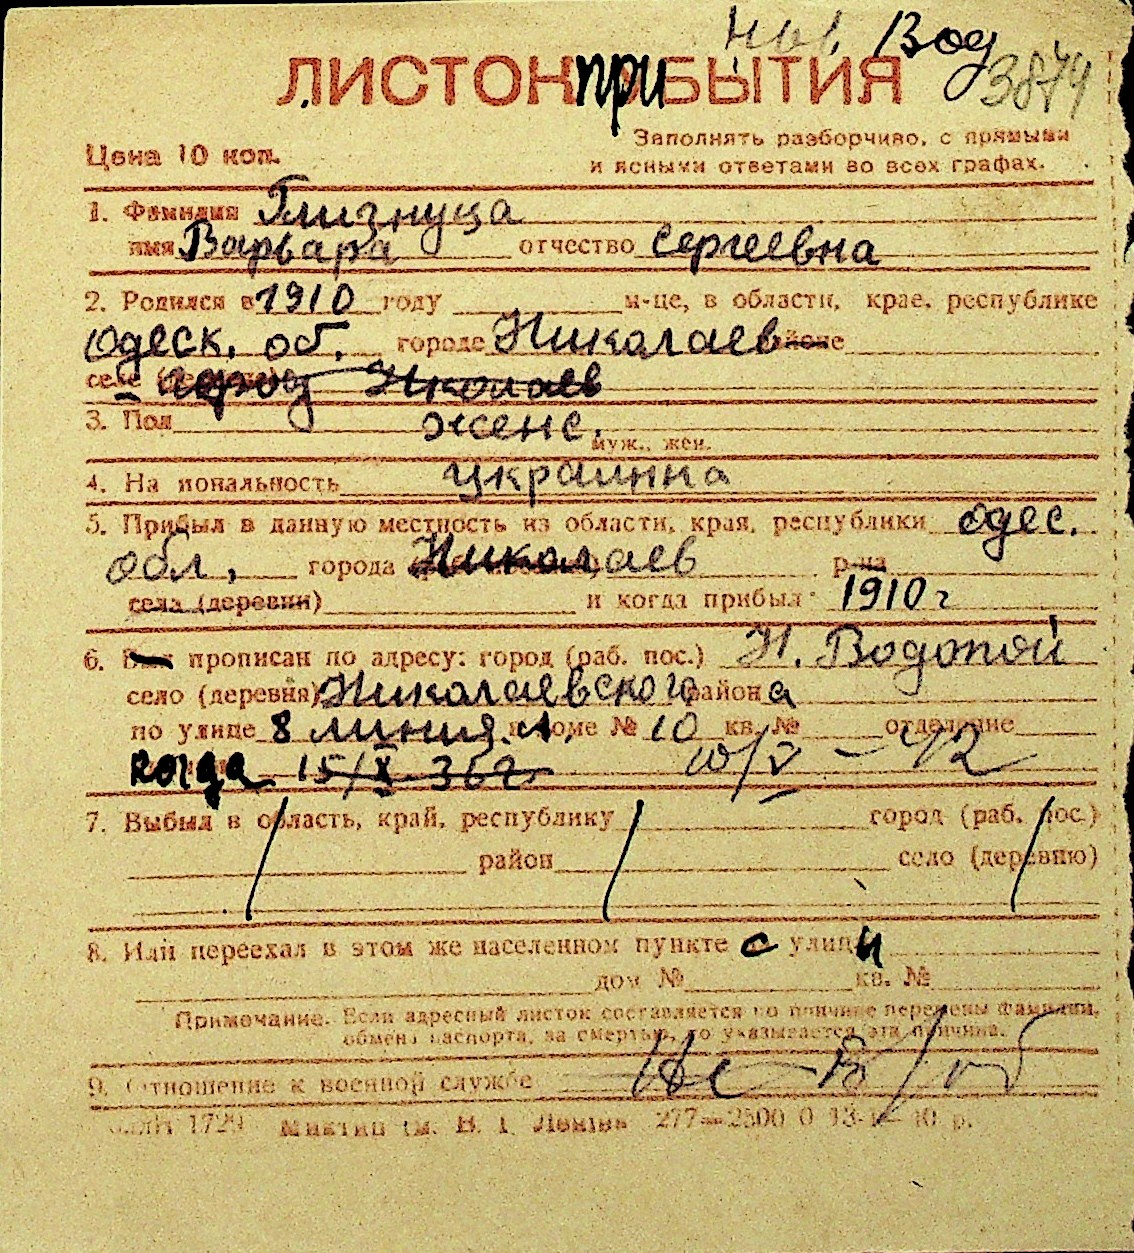 Нов. Вод
ЛИСТОК ПРИБЫТИЯ
3874
Цена 10 коп.
Заполнять разборчиво, с прямыми
и ясными ответами во всех графах.
1. Фамилия Глизнуца
имя Варвара отчество Сергеевна
2. Родился в 1910 году м-це, в области, крае, республике
Одеск. об. городе Николаев районе
селе город Николаев
3. Пол женс.
муж., жен.
4. Национальность украинка
5. Прибыл в данную местность из области, края, республики Одес.
обл, города Николаев р-на
села (деревни) и когда прибыл 1910 г
6. прописан по адресу: город (раб. пос.) Н. Водопой
село (деревня) Николаевского района
по улице 8 линия в доме № 10 кв. № отделение
когда 15/X 36г. 10/V - 42
7. Выбыл в область, край, республику город (раб. пос.)
район село (деревню)
8. Или переехал в этом же населенном пункте с улицы
дом № кв. №
Примечание. Если адресный листок составляется по причине перемены фамилии,
обмена паспорта, за смертью, то указывается эта причина.
9. Отношение к военной службе
1729 277—2500 0